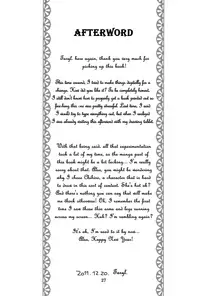 AFTERWORD
Sargh here again, thank you very much for
picking up this book!
This time around, I tried to make things digitally for a
change. How did you like it? To be completely honest,
I still don't know how to properly get a book printed out so
far doing this was pretty stressful. Last time, I said
I would try to type everything out, but when I realized
I was already writing this afterword with my drawing tablet.
With that being said, all that experimentation
took a lot of my time, so the manga part of
this might be a bit lacking... I'm really
sorry about that. Also, you might be wondering
why I chose Chihiro, a character that is hard
to draw in this sort of context. She's hot ok?
And there's nothing you can say that will make
me think otherwise! Oh, I remember the first
time I saw those thin arms and legs running
across my screen... Huh? I'm rambling again?
It's ok, I'm used to it by now...
Also, Happy New Year!
2011.12.20. Sargh
27